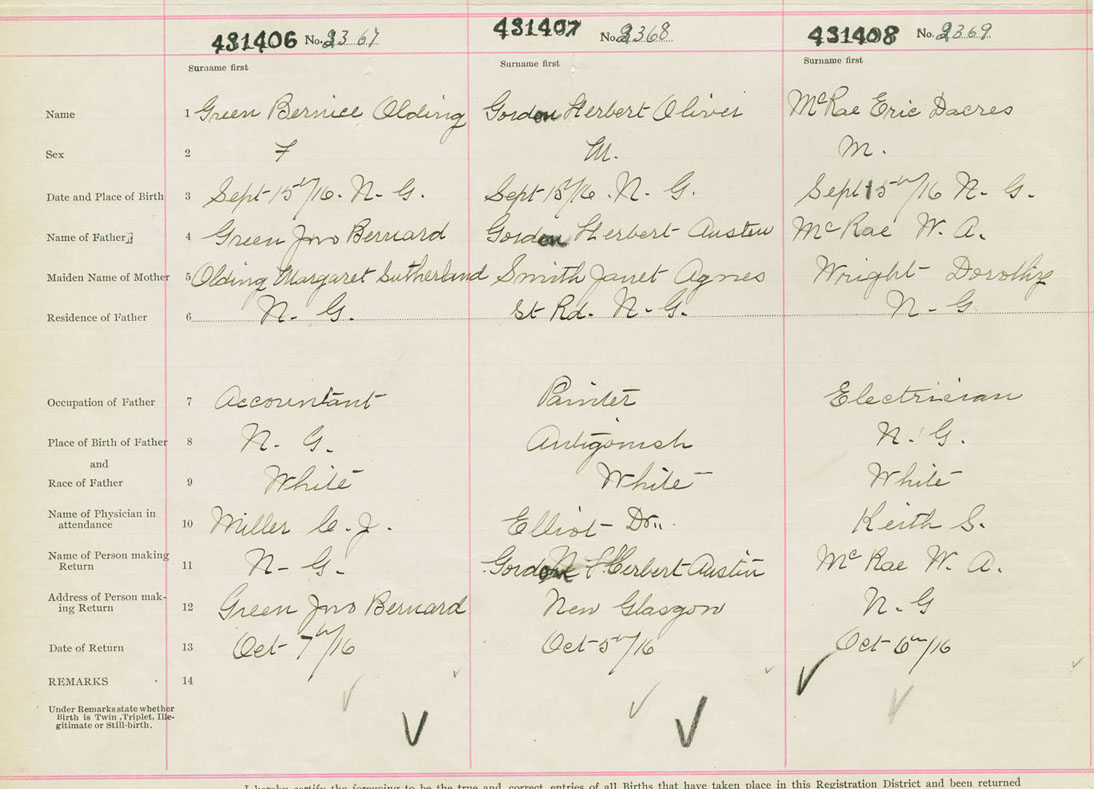 431406 No. 2367 431407 No. 2368 431408 No. 2369
Surname first Surname first Surname first
Name 1 Green Bernice Olding Gordon Herbert Oliver McRae Eric Dacres
Sex 2 F M. M.
Date and Place of Birth 3 Sept 15th/16. N. G. Sept 15th/16. N. G. Sept 15th/16 N. G.
Name of Father 4 Green Jno Bernard Gordon Herbert Austin McRae W. A.
Maiden Name of Mother 5 Olding Margaret Sutherland Smith Janet Agnes Wright Dorothy
Residence of Father 6 N. G. St Rd. N. G. N. G
Occupation of Father 7 Accountant Painter Electrician
Place of Birth of Father 8 N. G. Antigonish N. G.
and
Race of Father 9 White White White
Name of Physician in
attendance 10 Miller C. J. Elliot Dr. Keith S.
Name of Person making
Return 11 N. G. Gordon Herbert Austin McRae W. A.
Address of Person mak-
ing Return 12 Green Jno Bernard New Glasgow N. G
Date of Return 13 Oct 7th/16 Oct 5th/16 Oct 6th/16
REMARKS 14
Under Remarks state whether
Birth is Twin, Triplet, Ille-
gitimate or Still-birth.
I hereby certify the foregoing to be the true and correct entries of all Births that have taken place in this Registration District and been returned